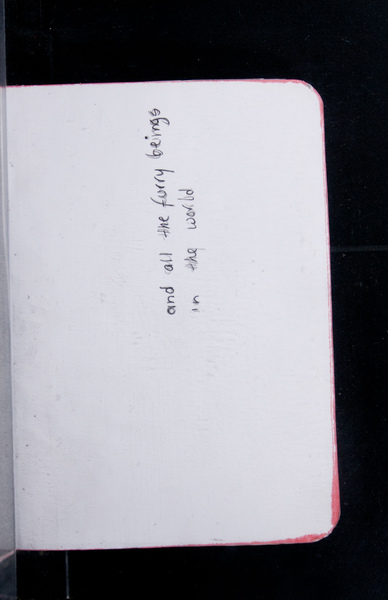 and all the furry beings
in the world